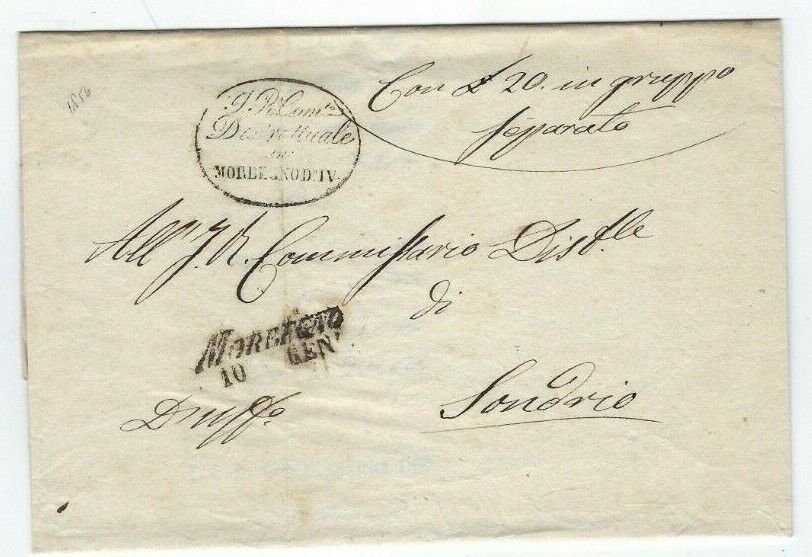 1856
Con £ 20. in gruppo
separato
I. R. Com.
Distrettuale
in
MORBEGNO D. IV.
All' I. R. Commissario Dist.le
di
MORBEGNO
10 GEN.
Sondrio